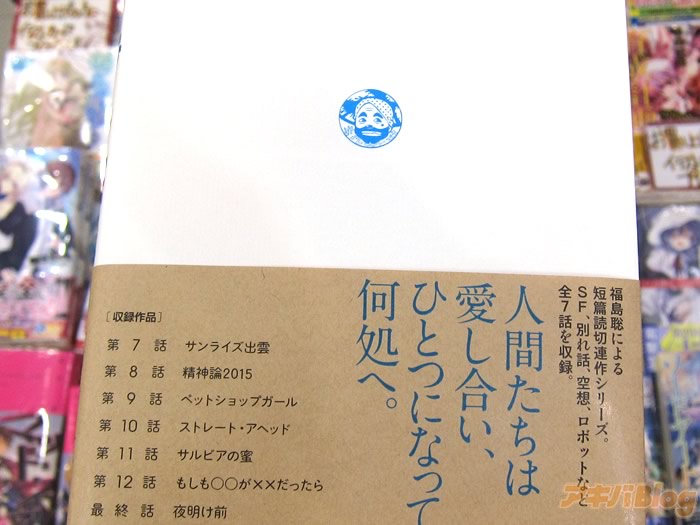 福島聡による
短篇読切連作シリーズ。
SF、別れ話、空想、ロボットなど
全7話を収録。
人間たちは
愛し合い、
ひとつになって
何処へ。
[収録作品]
第7話 サンライズ出雲
第8話 精神論2015
第9話 ペットショップガール
第10話 ストレート・アヘッド
第11話 サルビアの蜜
第12話 もしも○○が××だったら
最終話 夜明け前
アキバBlog